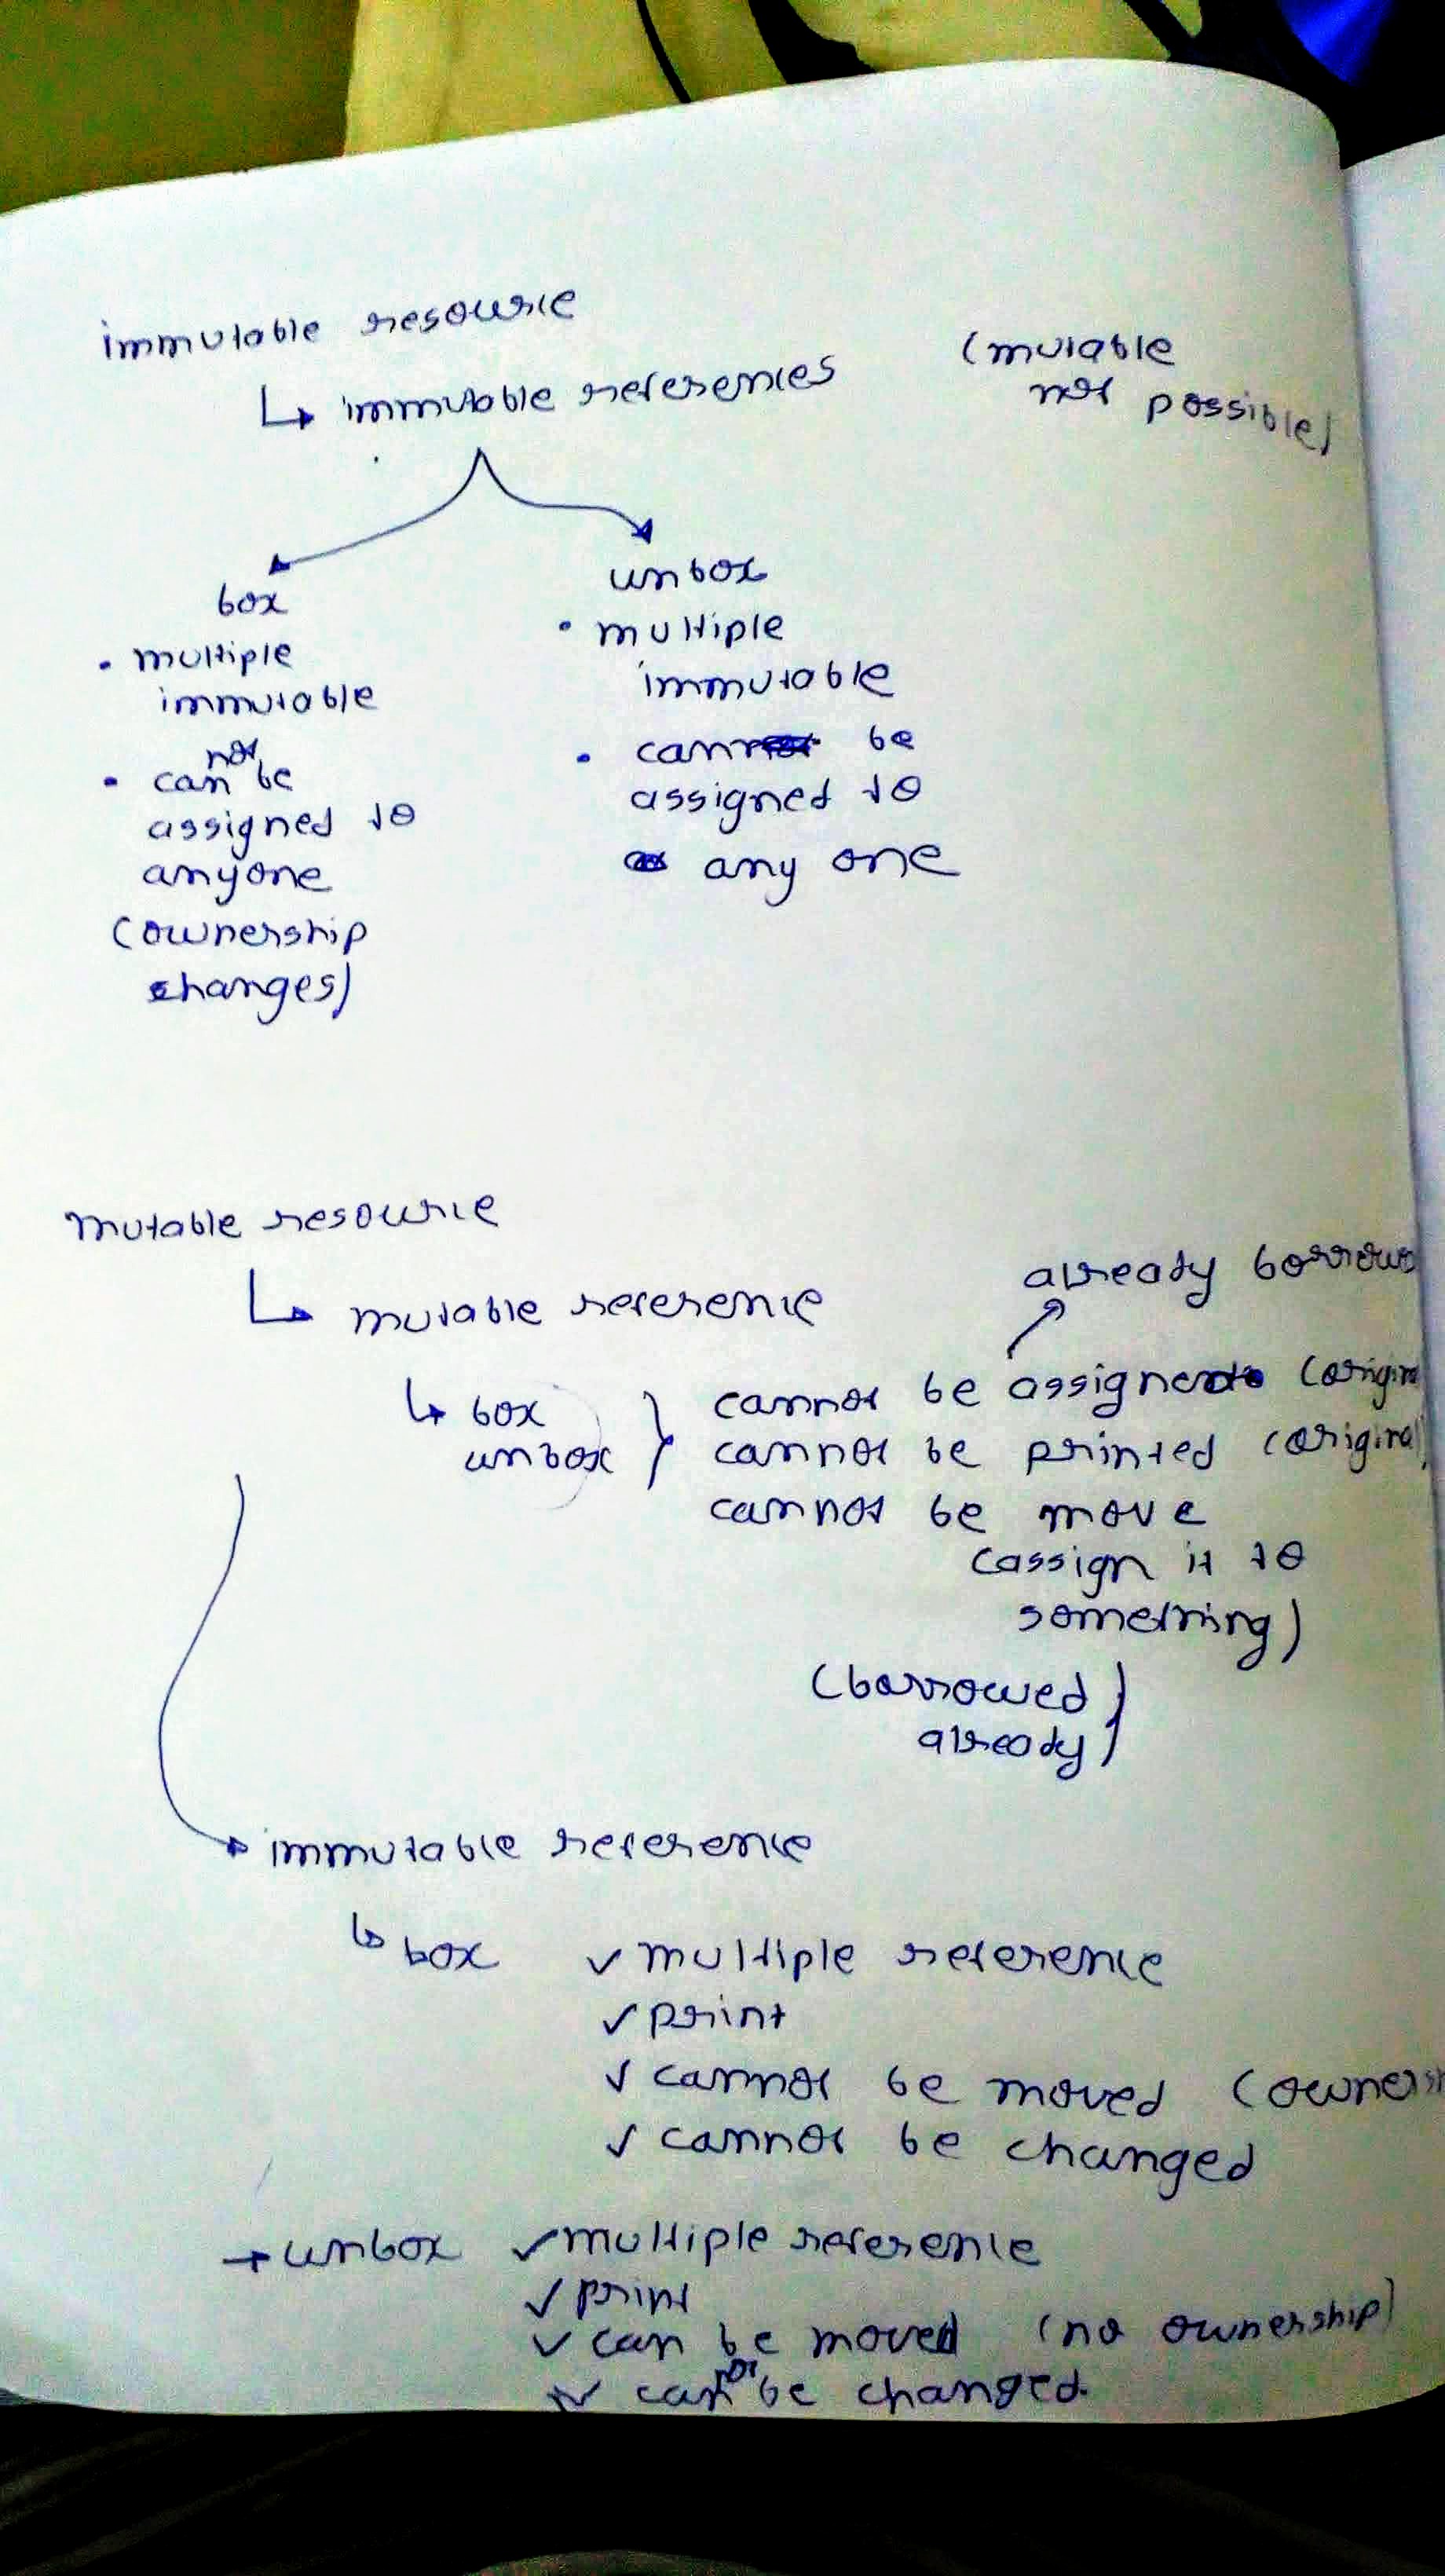 immutable resource
↳ immutable references (mutable
not possible)
box
• multiple
immutable
not
• can be
assigned to
anyone
(ownership
changes)
unbox
• multiple
immutable
• can be
assigned to
any one
mutable resource
↳ mutable reference
already borrowed
↳ box
unbox
cannot be assigned
cannot be printed (original)
cannot be move
(assign it to
something)
(borrowed
already)
immutable reference
↳ box ✓ multiple reference
✓ print
✓ cannot be moved
✓ cannot be changed
→ unbox ✓ multiple reference
✓ print
✓ can be moved (no ownership)
✓ cannot be changed.